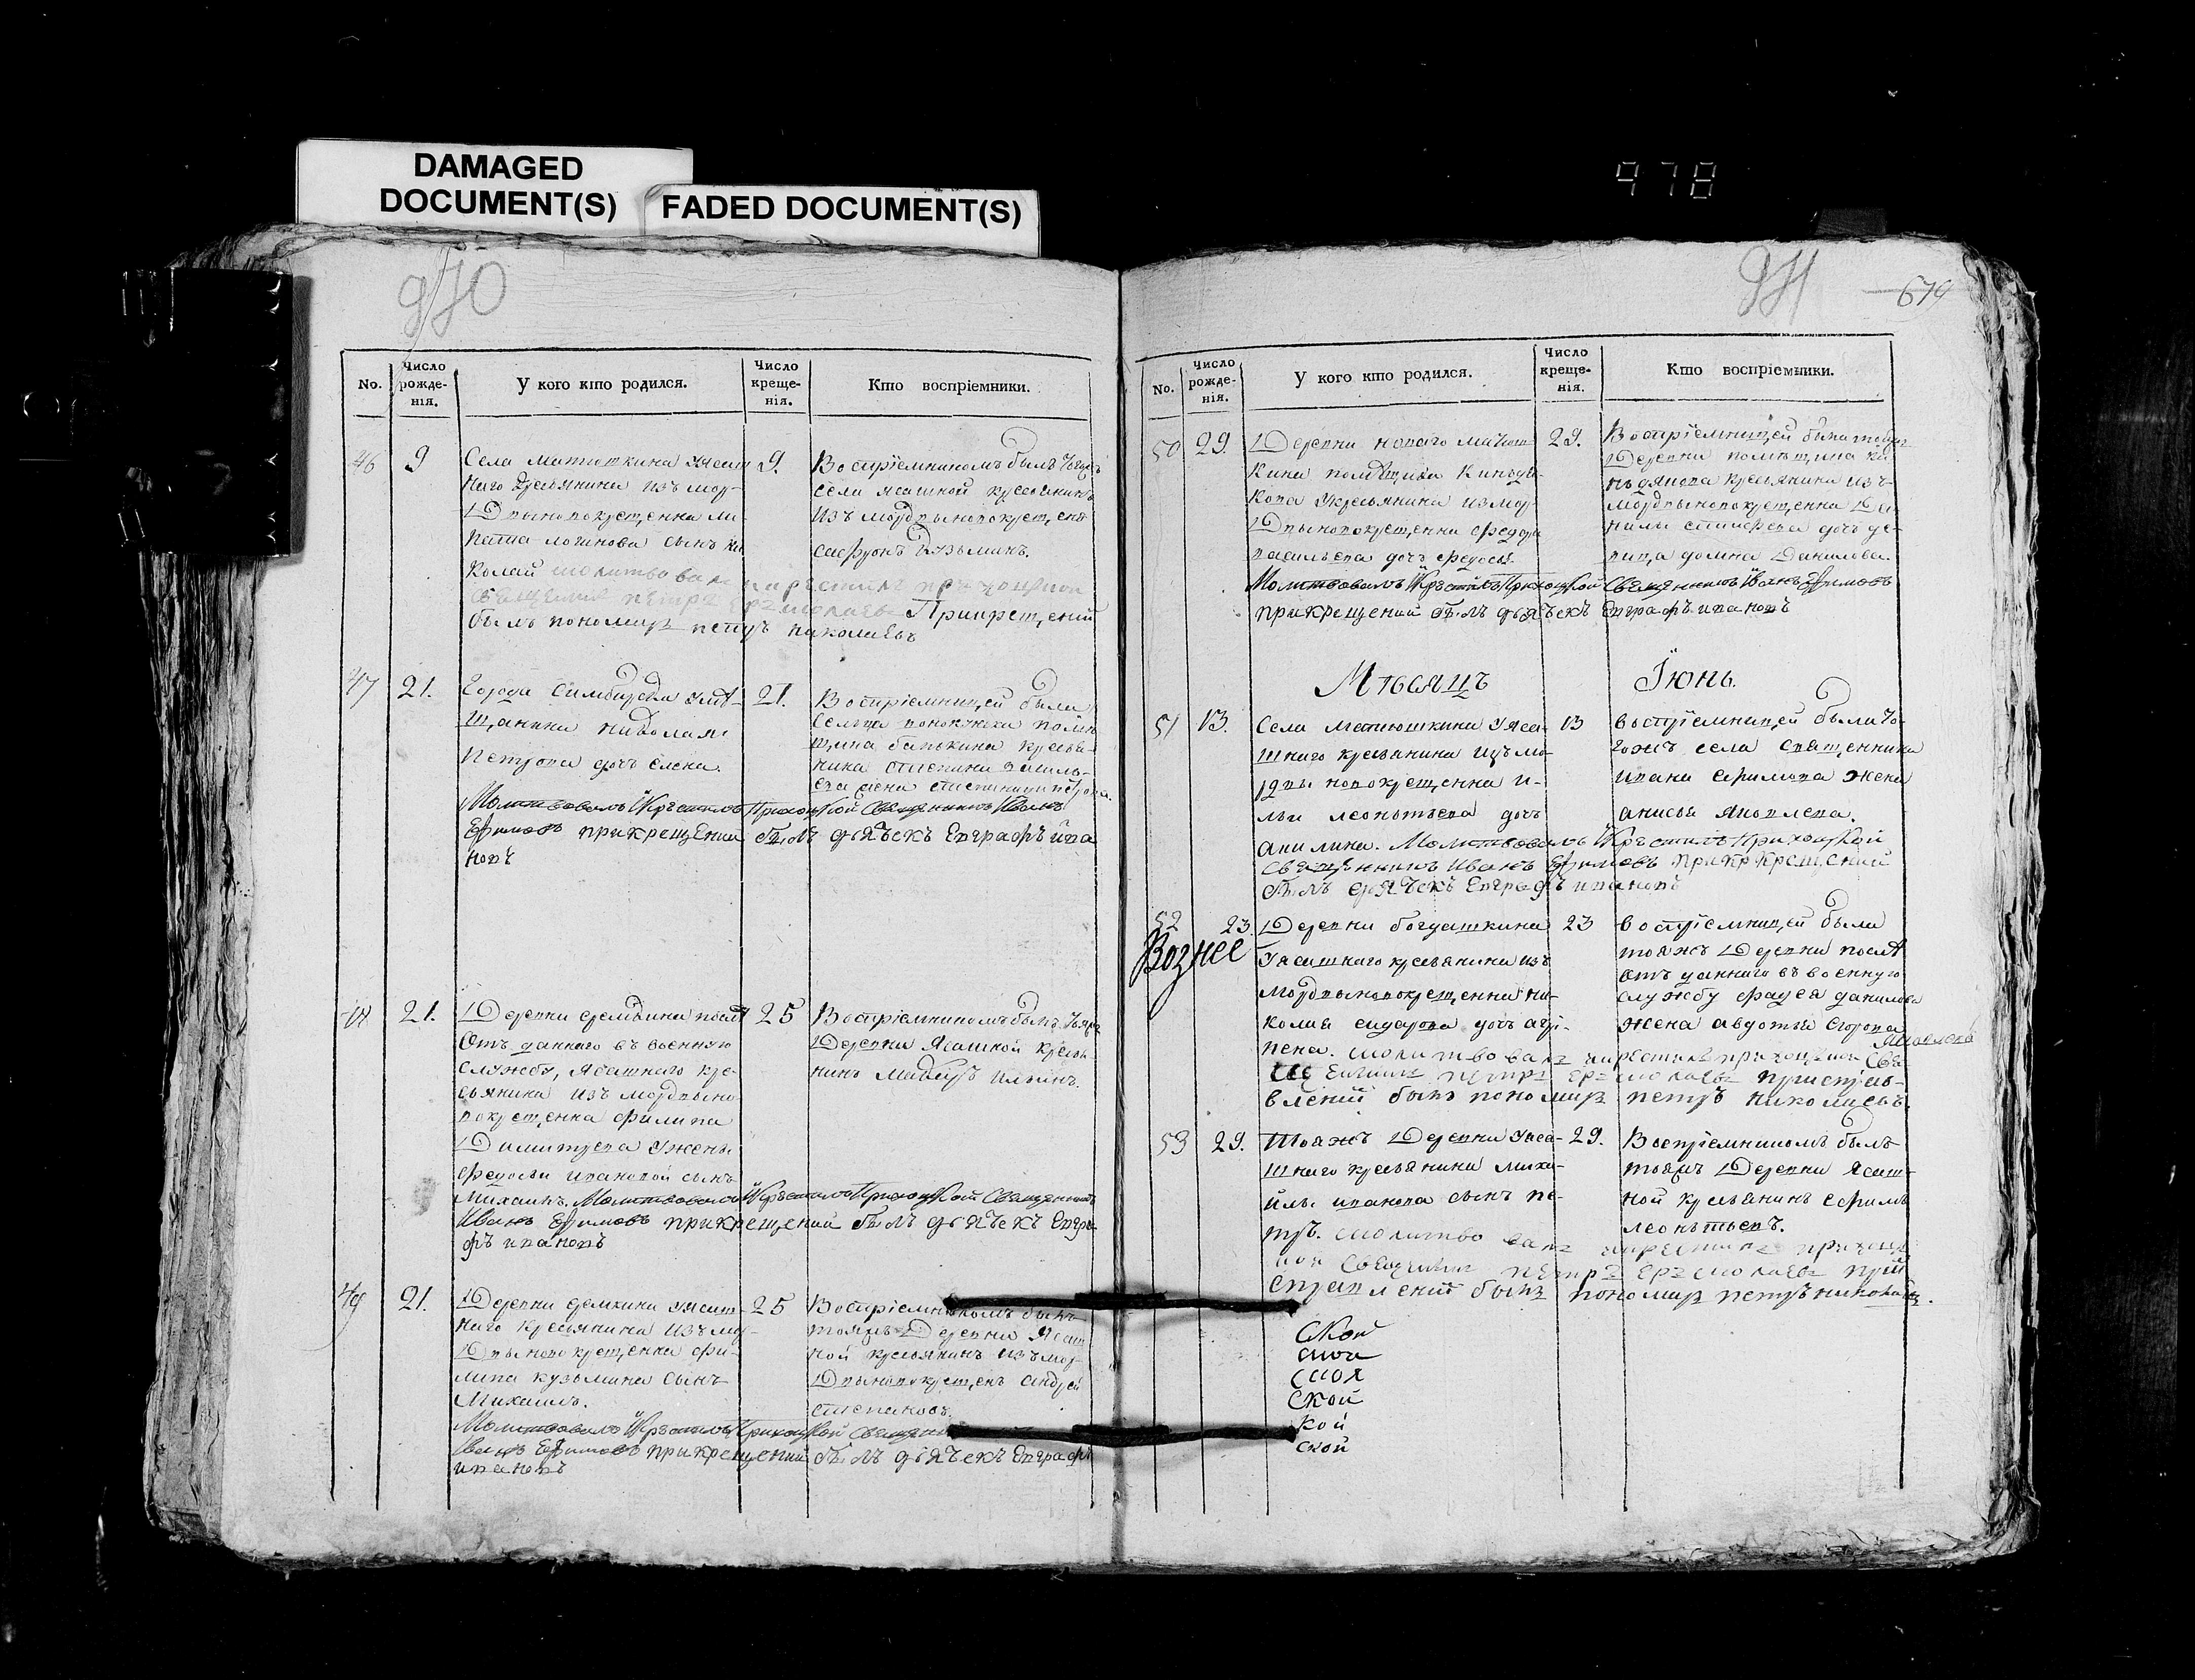 DAMAGED
DOCUMENT(S)
FADED DOCUMENT(S)
978
970
No.
Число рожде-нія.
У кого кто родился.
Число креще-нія.
Кто воспріемники.
46 9
Села матюшкина уясаш
наго крестьянина изъ мор-
двыновокрещенна
логинова сынъ ни
колай молитвовалъ икрестилъ приходцкой
священикъ петръ ермолаевъ Прикрещений
былъ пономарь петръ николаевъ
9.
Воспріемникомъ былъ тогожъ
села ясашной крестьянинъ
изъ мордвыновокрещенъ
сафронъ кузьминъ.
47 21.
Города симбирска умѣ-
щанина николая
петрова дочь елена.
Молитвовалъ Икрестилъ Приходцкой Священникъ Иванъ
Ефимовъ прикрещении былъ дьячекъ Епграфъ ива
новъ
21.
Воспріемницей была
сельца
крестья-
нина степана василь-
ева жена степанида петрова.
48 21.
Деревни
отъ даннаго въ военную
службу, ясашнаго кре-
сьянина изъ мордвыно
вокрещенна филипа
Димитрева ужены
федосьи ивановой сынъ
михаилъ. Молитвовалъ Икрестилъ Приходцкой Священникъ
Иванъ Ефимовъ прикрещений былъ дьячекъ Епгра
фъ ивановъ
25
Воспріемникомъ былъ тояжъ
Деревни Ясашной кресья-
нинъ ильинъ.
49 21.
Деревни демкина уясаш-
наго кресьянина изъ мор-
двыновокрещенна фи-
липа кузьмина сынъ
Михаилъ.
Молитвовалъ Икрестилъ Приходцкой
Иванъ Ефимовъ прикрещений былъ дьячекъ Епграфъ
ивановъ
25
Воспріемникомъ былъ
тояжъ Деревни Ясаш
ной кресьянинъ изъ мор
двыновокрещенъ андрей
степановъ.
971
679
No.
Число рожде-нія.
У кого кто родился.
Число креще-нія.
Кто воспріемники.
50 29.
Деревни новаго матюш
кина помѣщика
кова укресьянина измор
двыновокрещенна федора
васильева дочь федосья
Молитвовалъ Икрестилъ Приходцкой Священникъ Иванъ Ефимовъ
прикрещений былъ дьячекъ Епграфъ ивановъ
29.
Воспріемницей была тояжъ
Деревни помѣщика
кресьянина изъ
мордвыновокрещенна Да
нилы дочь де-
вица домна Данилова.
Мѣсяцъ Іюнь.
51 13.
Села матюшкина уяса-
шнаго кресьянина изъ мо-
рдвы новокрещенна и-
льи леонтьева дочь
акилина. Молитвовалъ Икрестилъ Приходцкой
Священникъ Иванъ Ефимовъ прикркрещений
былъ дьячекъ Епграфъ ивановъ
13
воспріемницей была то-
гожъ села священника
ивана ефимова жена
анисья яковлева.
52 23.
Вознес
Деревни богдашкина
уясашнаго кресьянина изъ
мордвыновокрещенна ни-
колая сидорова дочь агри-
пена. молитвовалъ икрестилъ приходцкой свя
щеникъ петръ ермолаевъ приотпра-
влений былъ пономарь петръ николаевъ.
23
воспріемницей была
тояжъ Деревни послѣ
отъ даннаго въ военную
службу фадея данилова
жена авдотья егорова
яковлева
53 29.
Тояжъ Деревни уяса-
шнаго кресьянина миха-
йлы иванова сынъ пе-
тръ. молитвовалъ икрестилъ приходц
кой священикъ петръ ермолаевъ при
отправлений былъ пономарь петръ николаевъ.
29.
Воспріемникомъ былъ
тояжъ Деревни Ясаш-
ной кресьянинъ ефимъ
леонтьевъ.
Ской
скои
ская
Ской
кой
ской